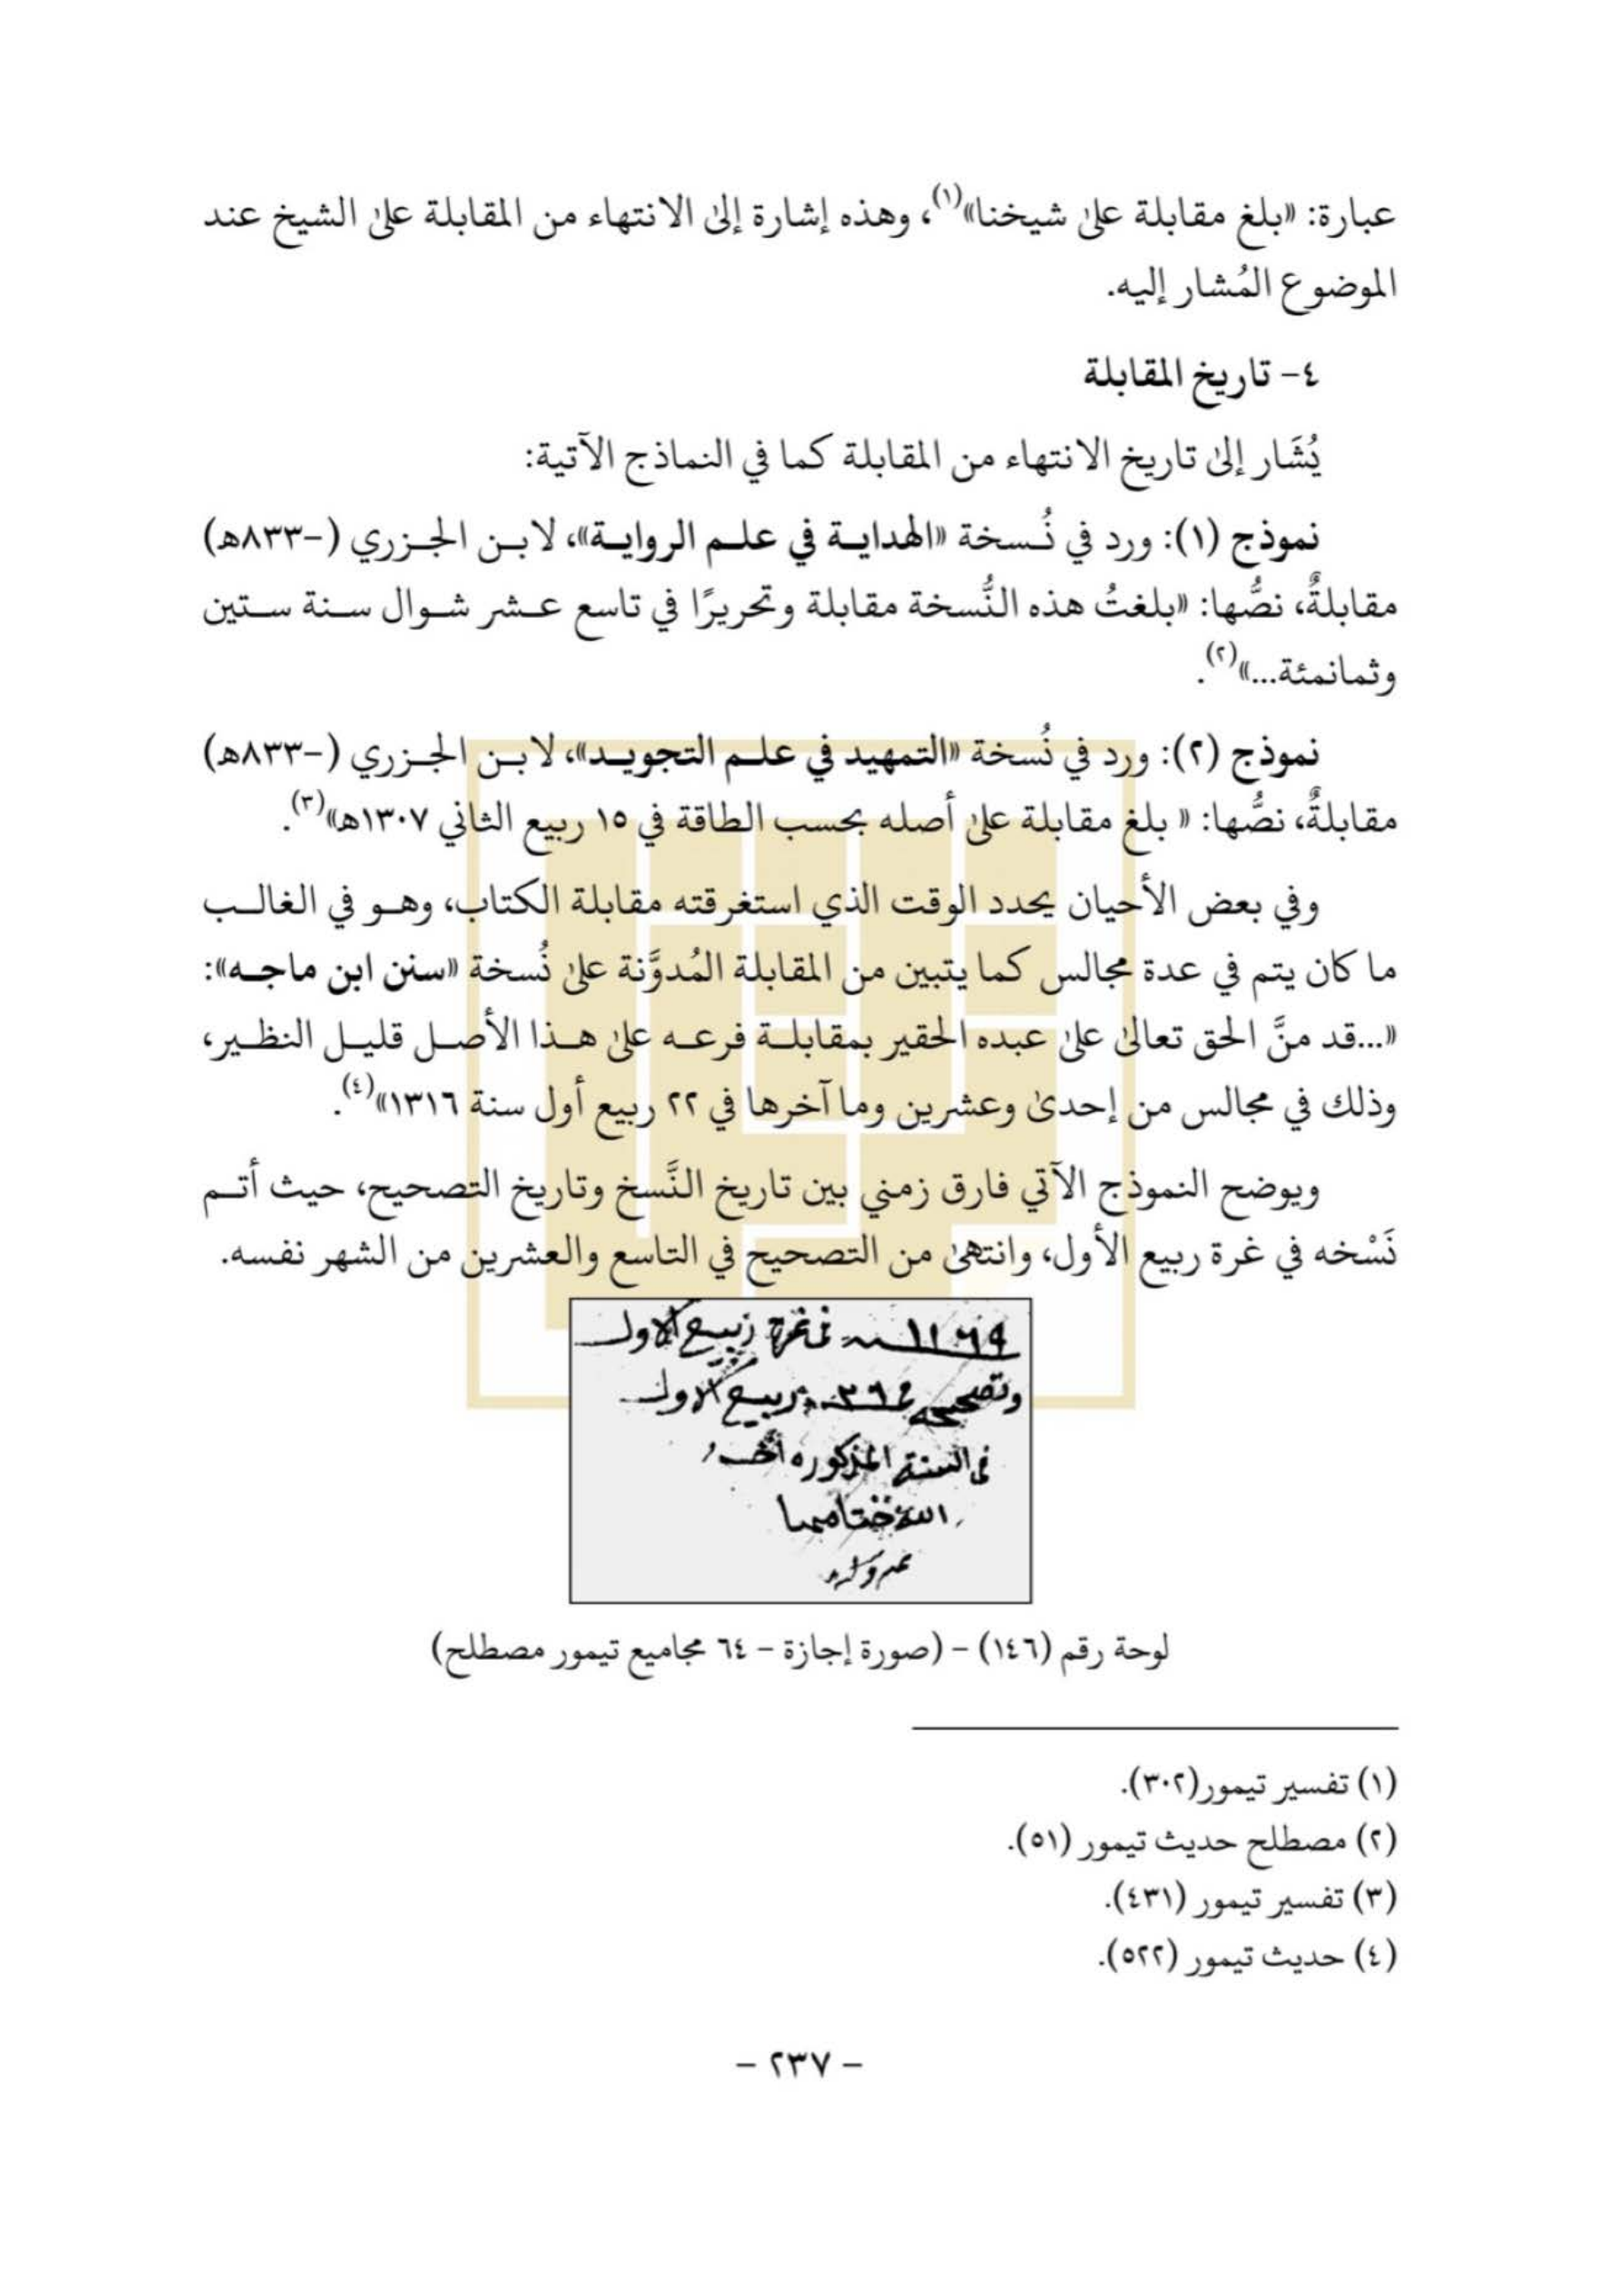 عبارة: «بلغ مقابلة على شيخنا»(١)، وهذه إشارة إلى الانتهاء من المقابلة على الشيخ عند
الموضوع المُشار إليه.
٤- تاريخ المقابلة
يُشَار إلى تاريخ الانتهاء من المقابلة كما في النماذج الآتية:
نموذج (١): ورد في نُسخة «الهداية في علم الرواية»، لابن الجزري (-٨٣٣ه)
مقابلةٌ، نصُّها: «بلغتُ هذه النُّسخة مقابلة وتحريرًا في تاسع عشر شوال سنة ستين
وثمانمئة...»(٢).
نموذج (٢): ورد في نُسخة «التمهيد في علم التجويد»، لابن الجزري (-٨٣٣ه)
مقابلةٌ، نصُّها: « بلغ مقابلة على أصله بحسب الطاقة في ١٥ ربيع الثاني ١٣٠٧ه»(٣).
وفي بعض الأحيان يحدد الوقت الذي استغرقته مقابلة الكتاب، وهو في الغالب
ما كان يتم في عدة مجالس كما يتبين من المقابلة المُدوَّنة على نُسخة «سنن ابن ماجه»:
«...قد منَّ الحق تعالى على عبده الحقير بمقابلة فرعه على هذا الأصل قليل النظير،
وذلك في مجالس من إحدى وعشرين وما آخرها في ٢٢ ربيع أول سنة ١٣١٦»(٤).
ويوضح النموذج الآتي فارق زمني بين تاريخ النَّسخ وتاريخ التصحيح، حيث أتم
نَسْخه في غرة ربيع الأول، وانتهى من التصحيح في التاسع والعشرين من الشهر نفسه.
١١٦٩ في غرة ربيع الاول
وتصحيحه في ربيع الاول
في السنة المذكوره احسن
الله ختامها
لوحة رقم (١٤٦) - (صورة إجازة - ٦٤ مجاميع تيمور مصطلح)
(١) تفسير تيمور(٣٠٢).
(٢) مصطلح حديث تيمور (٥١).
(٣) تفسير تيمور (٤٣١).
(٤) حديث تيمور (٥٢٢).
- ٢٣٧ -